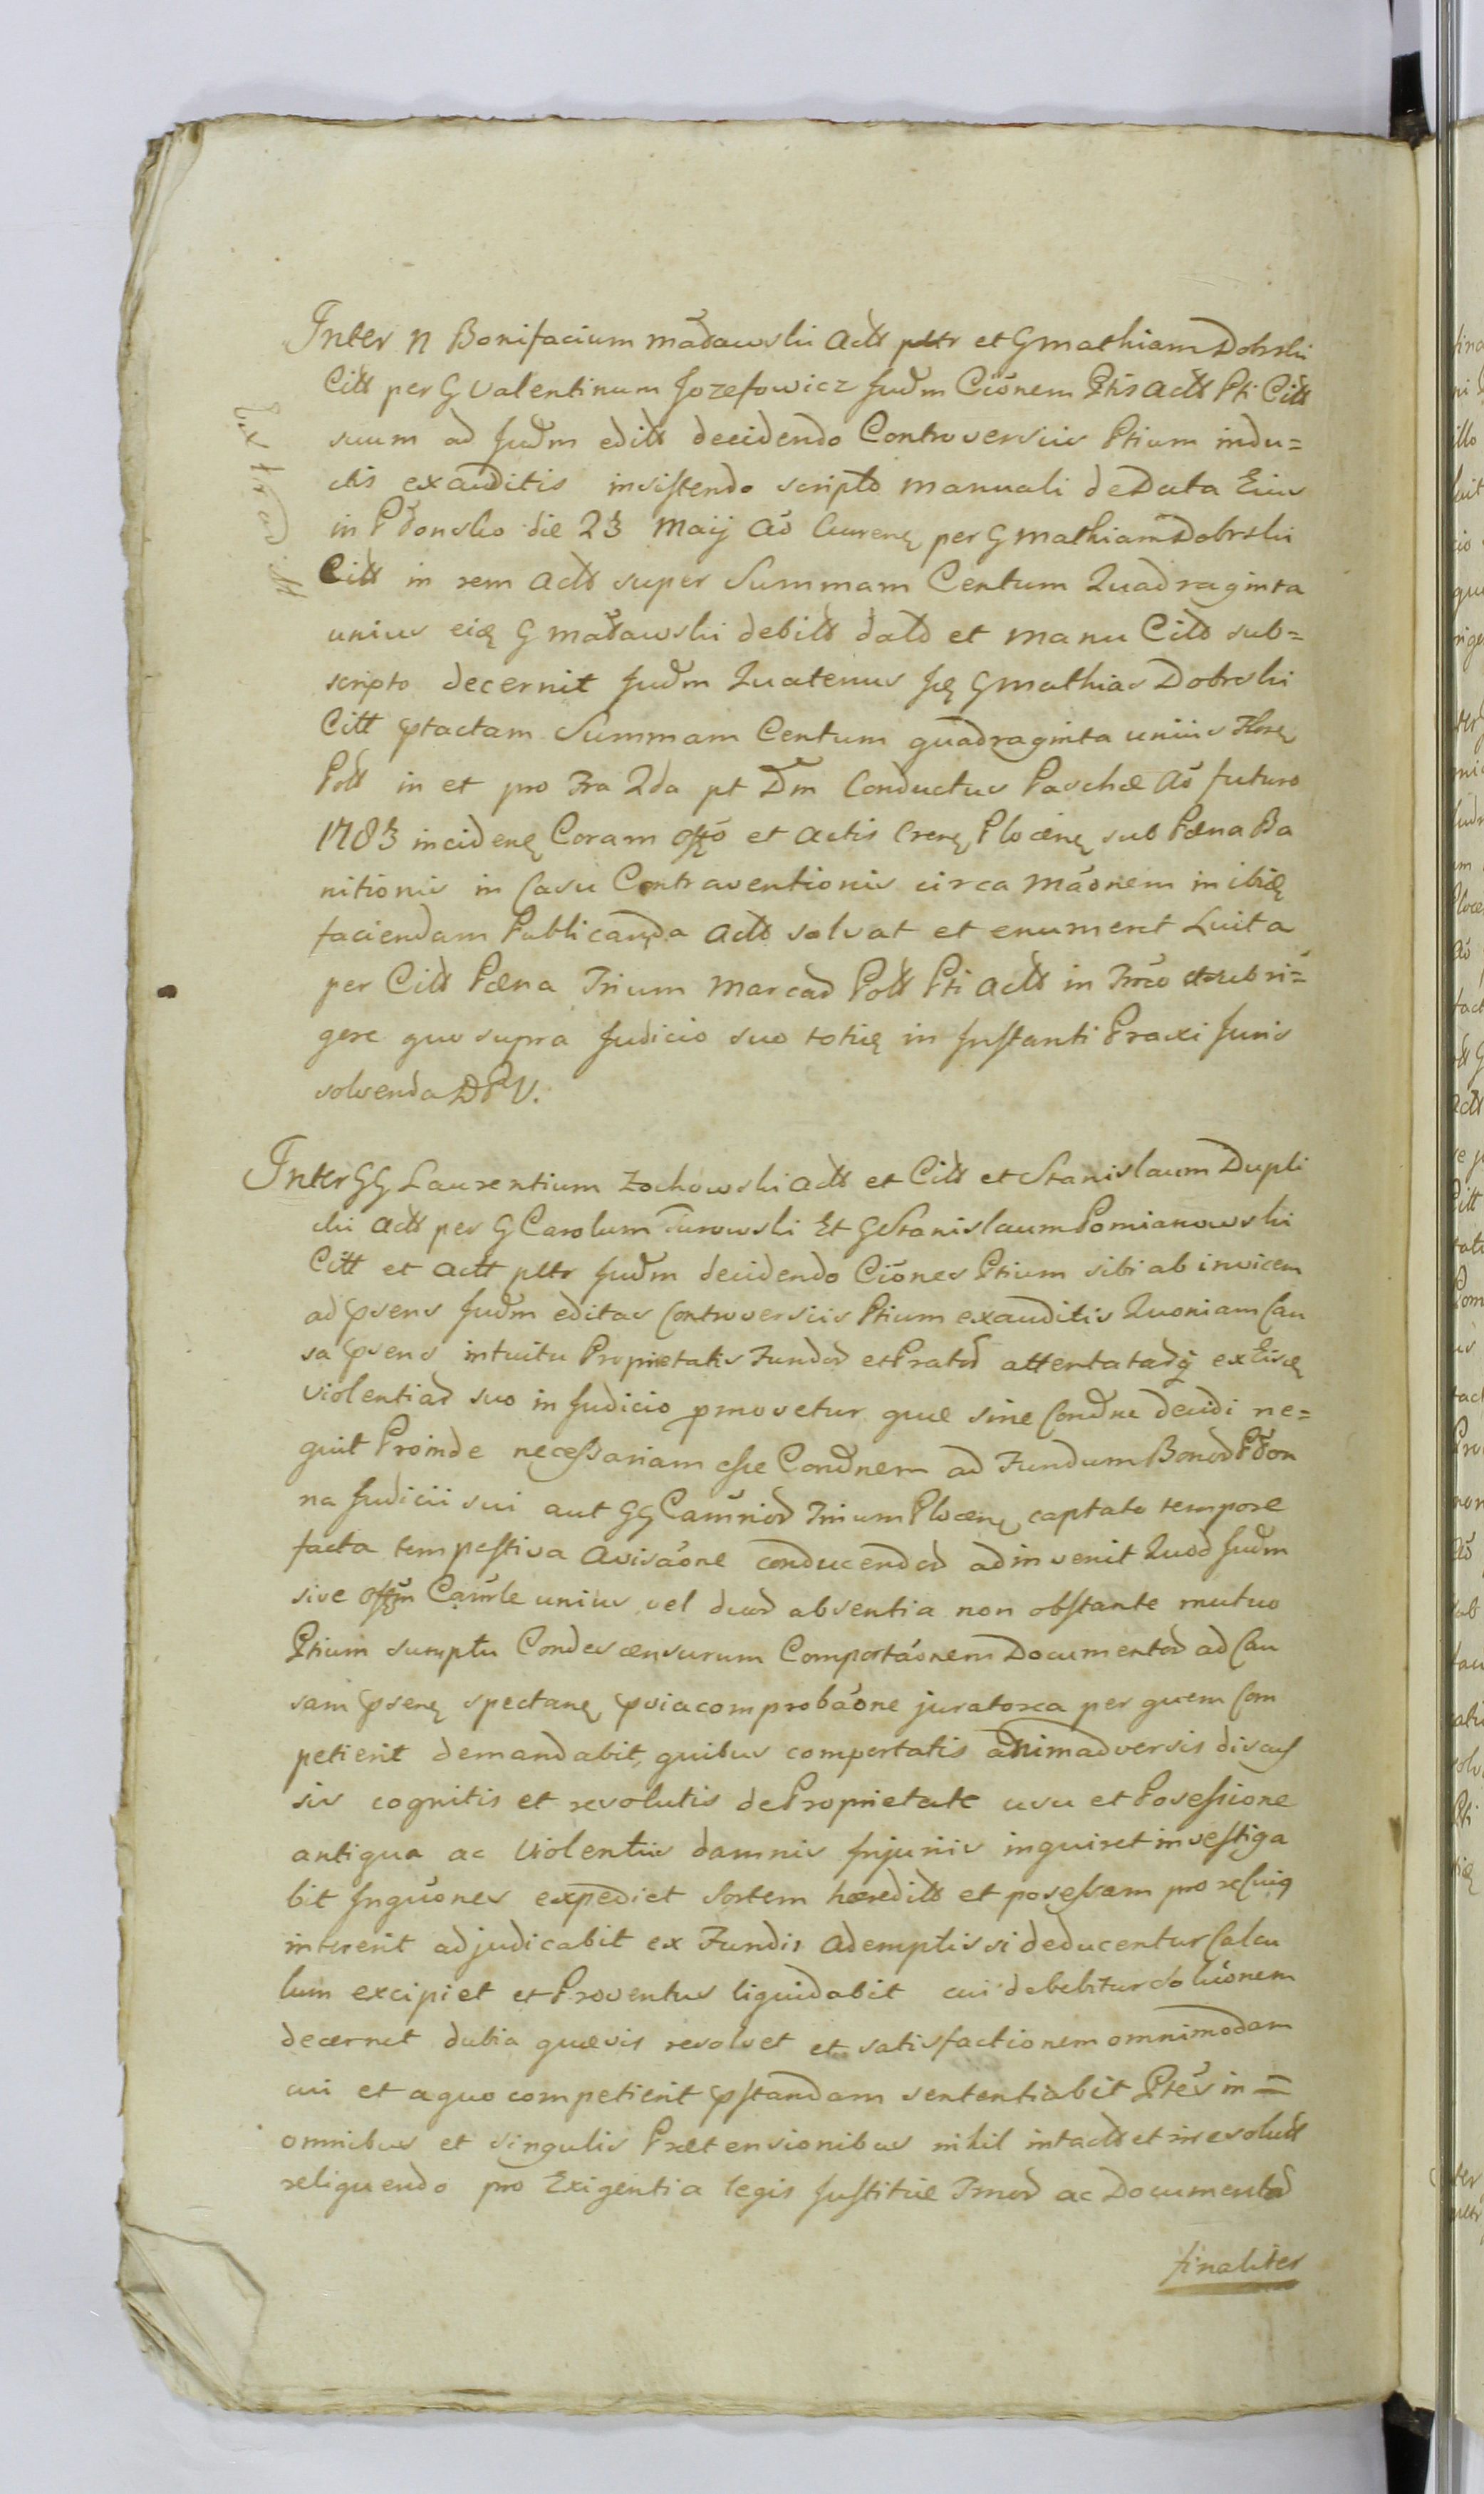 Inter N Bonifacium Madawski Actt pltr et G Mathiam Dobrski
Citt per G Valentinum Jozefowicz Judm Cionem Ptis Actt Pti Citt
suum ad Judm editt decidendo Controversiis Ptium indu=
ctis exauditis insistendo scripto manuali de Data Eius
in Płonsko die 23 Maij Ao Curren per G Mathiam Dobrski
Citt in rem Actt super Summam Centum Quadraginta
unius eid G Madawski debitt datt et manu Citt sub=
scripto decernit Judm Quatenus G Mathias Dobrski
Citt ptactam Summam Centum quadraginta unius Flor
Poll in et pro Fra 2da pt Dm Conductus Paschæ Ao futuro
1783 inciden Coram Offo et Actis Cren Plocen sub Pæna Ba
nitionis in Casu Contraventionis circa Maonem inibi
faciendam Publicanda Actt solvat et enumeret Luita
per Citt Pæna Trium Marcar Poll Pti Actt in Trco et subri=
gere quo supra Judicio suo toties in Instanti Praxi Juris
solvenda DPV.
Ext rad. A
Inter GG Laurentium Zochowski Actt et Citt et Stanislaum Dupli
cki Actt per G Carolum Turowski Et G Stanislaum Pomianowski
Citt et Actt pltr Judm decidendo Ciones Ptium sibi ab invicem
ad psens Judm editas Controversiis Ptium exauditis Quoniam Cau
sa psens intuitu Proprietatis Fundor et Prator attentatarq ex Eisd
violentiar suo in Judicio pmovetur quæ sine Condne decidi ne=
quit Proinde necessariam esse Condnem ad Fundum Bonor Płon
na Judicii sui aut GG Camrior Trium Plocen captato tempore
facta tempestiva Avisaone conducendor adinvenit Quod Judm
sive Offm Camrle unius vel duor absentia non obstante mutuo
Ptium sumptu Condescensurum Comportaonem Documentor ad Cau
sam psen spectan pvia comprobaone juratorea per quem Com
petierit demandabit, quibus comportatis animadversis discus
sis cognitis et revolutis de Proprietate usu et Posessione
antiqua ac violentiis damnis Injuriis inquiret investiga
bit Inquones expediet Sortem hæreditt et posessam pro ut cuiq
intererit adjudicabit ex Fundis Ademptis si deducentur Calcu
lum excipiet et Proventus liquidabit cui debebitur Soluonem
decernet dubia quævis resolvet et satisfactionem omnimodam
cui et a quo competierit pstandam sententiabit Ptes in =
omnibus et singulis Prætensionibus nihil intactt et irresolutt
reliquendo pro Exigentia legis Justitiæ Tmor ac Documentor
finaliter